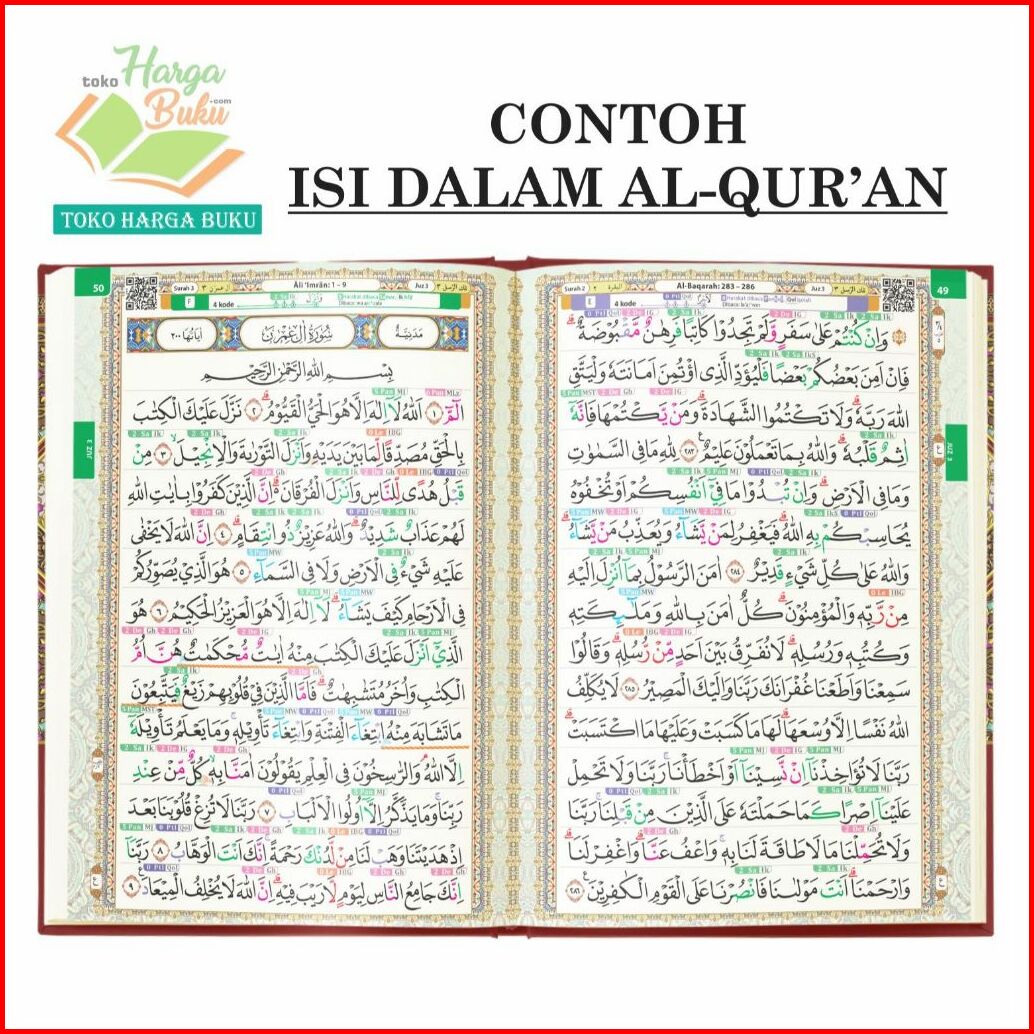 toko Harga Buku .com
TOKO HARGA BUKU
CONTOH
ISI DALAM AL-QUR’AN
49
Juz 3
Al-Baqarah: 283 – 286
Surah 2
E
4 kode
JUZ 3
وَاِنْ كُنْتُمْ عَلٰى سَفَرٍ وَّلَمْ تَجِدُوْا كَاتِبًا فَرِهٰنٌ مَّقْبُوْضَةٌ ۗ
فَاِنْ اَمِنَ بَعْضُكُمْ بَعْضًا فَلْيُؤَدِّ الَّذِى اؤْتُمِنَ اَمَانَتَهٗ وَلْيَتَّقِ
اللّٰهَ رَبَّهٗ ۗ وَلَا تَكْتُمُوا الشَّهَادَةَ ۗ وَمَنْ يَّكْتُمْهَا فَاِنَّهٗٓ
اٰثِمٌ قَلْبُهٗ ۗ وَاللّٰهُ بِمَا تَعْمَلُوْنَ عَلِيْمٌ ࣖ ٢٨٣ لِلّٰهِ مَا فِى السَّمٰوٰتِ
وَمَا فِى الْاَرْضِ ۗ وَاِنْ تُبْدُوْا مَا فِيْٓ اَنْفُسِكُمْ اَوْ تُخْفُوْهُ
يُحَاسِبْكُمْ بِهِ اللّٰهُ ۗ فَيَغْفِرُ لِمَنْ يَّشَاۤءُ وَيُعَذِّبُ مَنْ يَّشَاۤءُ ۗ
وَاللّٰهُ عَلٰى كُلِّ شَيْءٍ قَدِيْرٌ ٢٨٤ اٰمَنَ الرَّسُوْلُ بِمَآ اُنْزِلَ اِلَيْهِ
مِنْ رَّبِّهٖ وَالْمُؤْمِنُوْنَ ۗ كُلٌّ اٰمَنَ بِاللّٰهِ وَمَلٰۤىِٕكَتِهٖ
وَكُتُبِهٖ وَرُسُلِهٖ ۗ لَا نُفَرِّقُ بَيْنَ اَحَدٍ مِّنْ رُّسُلِهٖ ۗ وَقَالُوْا
سَمِعْنَا وَاَطَعْنَا غُفْرَانَكَ رَبَّنَا وَاِلَيْكَ الْمَصِيْرُ ٢٨٥ لَا يُكَلِّفُ
اللّٰهُ نَفْسًا اِلَّا وُسْعَهَا ۗ لَهَا مَا كَسَبَتْ وَعَلَيْهَا مَا اكْتَسَبَتْ ۗ
رَبَّنَا لَا تُؤَاخِذْنَآ اِنْ نَّسِيْنَآ اَوْ اَخْطَأْنَا ۚ رَبَّنَا وَلَا تَحْمِلْ
عَلَيْنَآ اِصْرًا كَمَا حَمَلْتَهٗ عَلَى الَّذِيْنَ مِنْ قَبْلِنَا ۚ رَبَّنَا
وَلَا تُحَمِّلْنَا مَا لَا طَاقَةَ لَنَا بِهٖ ۚ وَاعْفُ عَنَّا ۗ وَاغْفِرْ لَنَا ۗ
وَارْحَمْنَا ۗ اَنْتَ مَوْلٰىنَا فَانْصُرْنَا عَلَى الْقَوْمِ الْكٰفِرِيْنَ ࣖ ٢٨٦
50
Surah 3
Āli ‘Imrān: 1 – 9
Juz 3
F
4 kode
JUZ 3
مَدَنِيَّةٌ
سُوْرَةُ اٰلِ عِمْرٰنَ
اٰيَاتُهَا ٢٠٠
بِسْمِ اللّٰهِ الرَّحْمٰنِ الرَّحِيْمِ
الۤمّۤ ۚ ١ اَللّٰهُ لَآ اِلٰهَ اِلَّا هُوَ الْحَيُّ الْقَيُّوْمُ ۗ ٢ نَزَّلَ عَلَيْكَ الْكِتٰبَ
بِالْحَقِّ مُصَدِّقًا لِّمَا بَيْنَ يَدَيْهِ وَاَنْزَلَ التَّوْرٰىةَ وَالْاِنْجِيْلَ ۙ ٣ مِنْ
قَبْلُ هُدًى لِّلنَّاسِ وَاَنْزَلَ الْفُرْقَانَ ۗ اِنَّ الَّذِيْنَ كَفَرُوْا بِاٰيٰتِ اللّٰهِ
لَهُمْ عَذَابٌ شَدِيْدٌ ۗ وَاللّٰهُ عَزِيْزٌ ذُو انْتِقَامٍ ۗ ٤ اِنَّ اللّٰهَ لَا يَخْفٰى
عَلَيْهِ شَيْءٌ فِى الْاَرْضِ وَلَا فِى السَّمَاۤءِ ۗ ٥ هُوَ الَّذِيْ يُصَوِّرُكُمْ
فِى الْاَرْحَامِ كَيْفَ يَشَاۤءُ ۗ لَآ اِلٰهَ اِلَّا هُوَ الْعَزِيْزُ الْحَكِيْمُ ٦ هُوَ
الَّذِيْٓ اَنْزَلَ عَلَيْكَ الْكِتٰبَ مِنْهُ اٰيٰتٌ مُّحْكَمٰتٌ هُنَّ اُمُّ
الْكِتٰبِ وَاُخَرُ مُتَشٰبِهٰتٌ ۗ فَاَمَّا الَّذِيْنَ فِيْ قُلُوْبِهِمْ زَيْغٌ فَيَتَّبِعُوْنَ
مَا تَشَابَهَ مِنْهُ ابْتِغَاۤءَ الْفِتْنَةِ وَابْتِغَاۤءَ تَأْوِيْلِهٖ ۚ وَمَا يَعْلَمُ تَأْوِيْلَهٗٓ
اِلَّا اللّٰهُ ۘ وَالرّٰسِخُوْنَ فِى الْعِلْمِ يَقُوْلُوْنَ اٰمَنَّا بِهٖ ۙ كُلٌّ مِّنْ عِنْدِ
رَبِّنَا ۚ وَمَا يَذَّكَّرُ اِلَّآ اُولُوا الْاَلْبَابِ ٧ رَبَّنَا لَا تُزِغْ قُلُوْبَنَا بَعْدَ
اِذْ هَدَيْتَنَا وَهَبْ لَنَا مِنْ لَّدُنْكَ رَحْمَةً ۚ اِنَّكَ اَنْتَ الْوَهَّابُ ٨ رَبَّنَآ
اِنَّكَ جَامِعُ النَّاسِ لِيَوْمٍ لَّا رَيْبَ فِيْهِ ۗ اِنَّ اللّٰهَ لَا يُخْلِفُ الْمِيْعَادَ ࣖ ٩